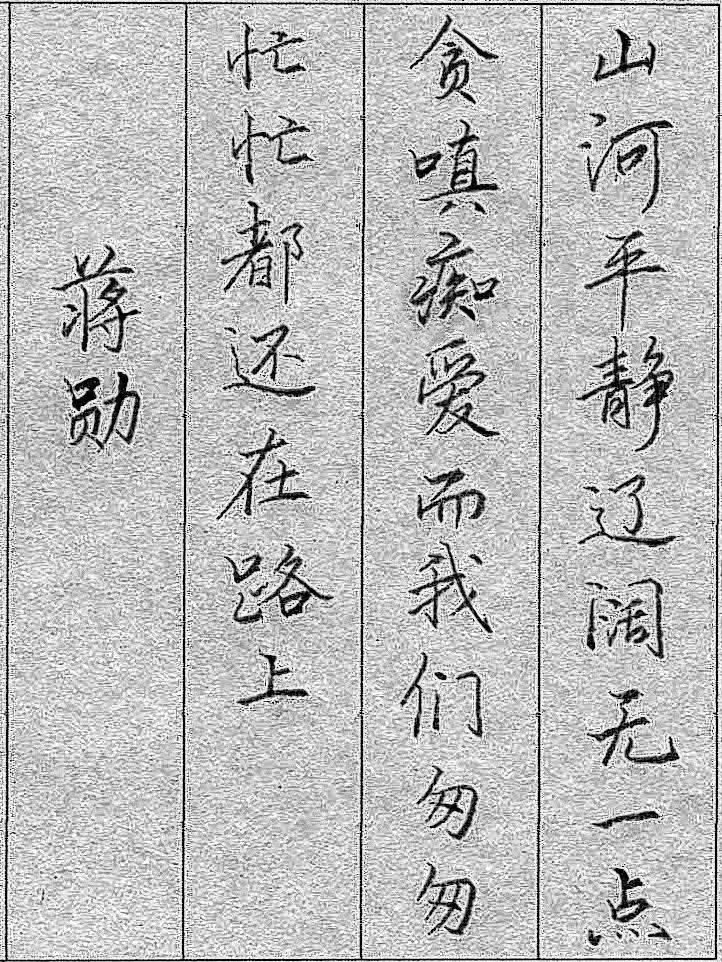 山河平静辽阔无一点
贪嗔痴爱而我们匆匆
忙忙都还在路上
蒋勋